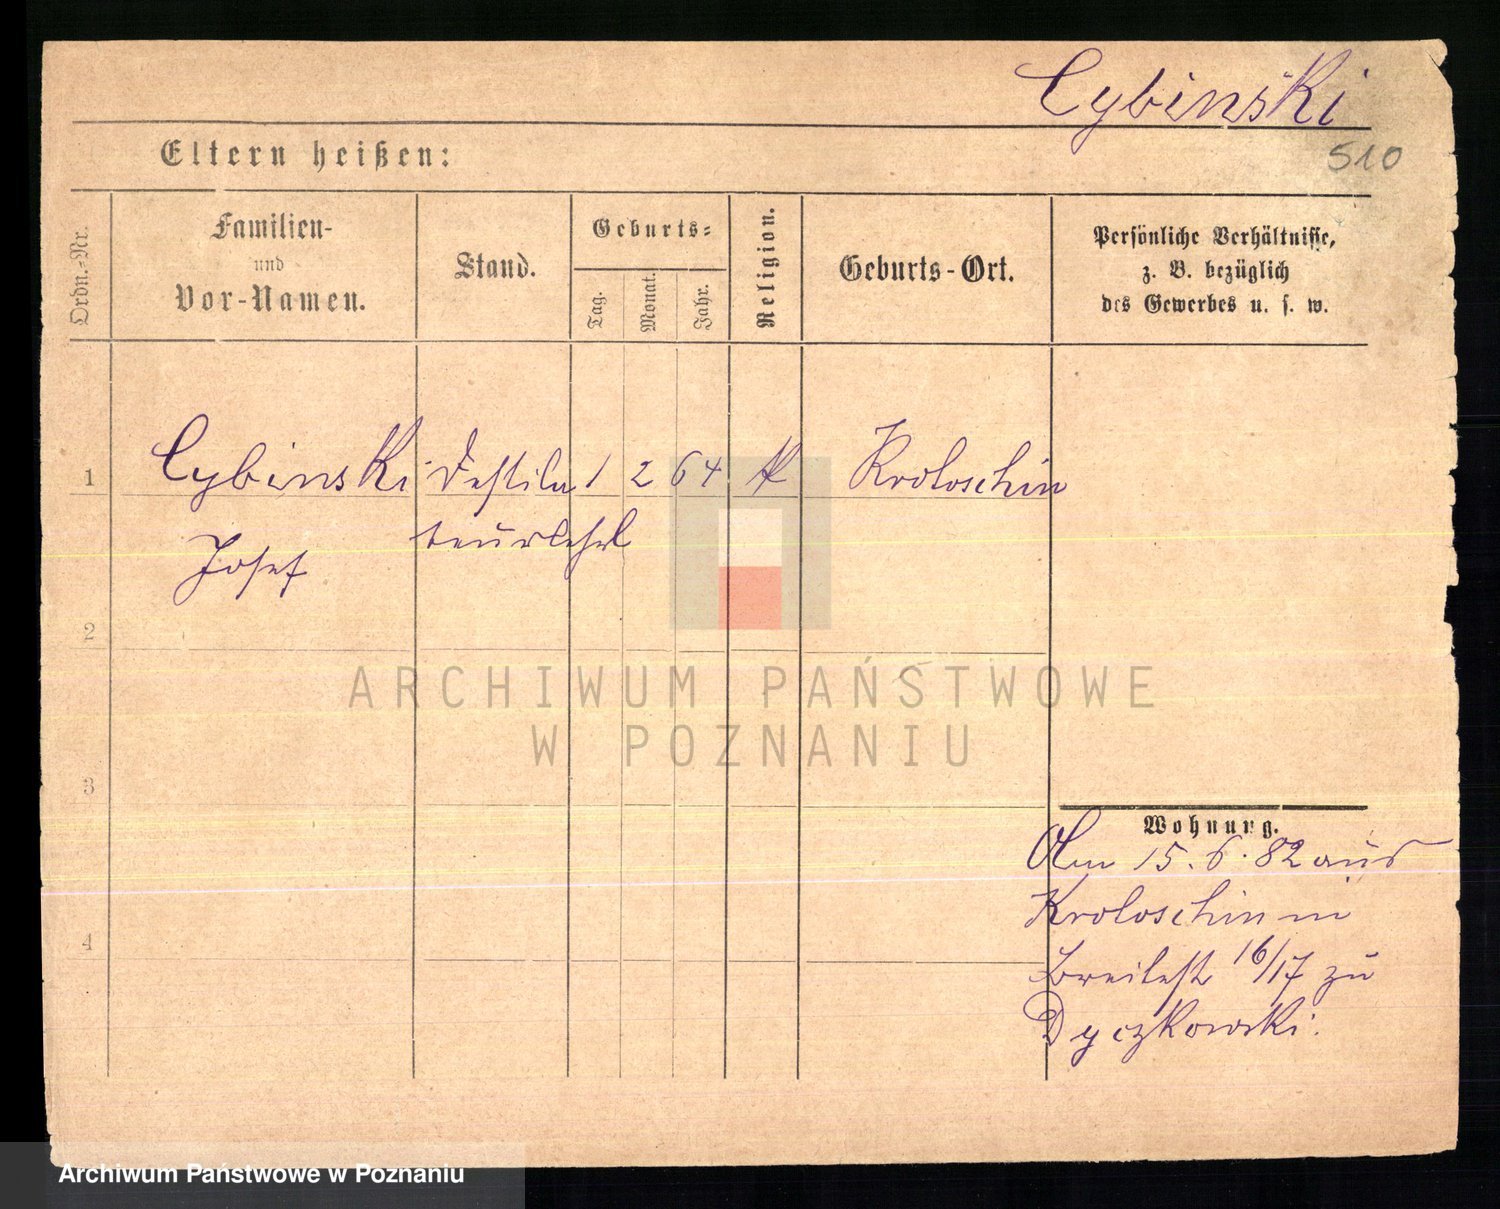 Cybinski
510
Eltern heißen:
Ordn.-Nr.
Familien-
und
Vor-Namen.
Stand.
Geburts-
Tag.
Monat.
Jahr.
Religion.
Geburts-Ort.
Persönliche Verhältnisse,
z. B. bezüglich
des Gewerbes u. s. w.
1 Cybinski Destila 1 2 64 K Kroloschin
Josef teurlehrl
2
3
4
Wohnung.
Am 15. 6. 82 aus
Kroloschin in
Breitestr 16/17 zu
Dyczkowski.
ARCHIWUM PAŃSTWOWE
W POZNANIU
Archiwum Państwowe w Poznaniu